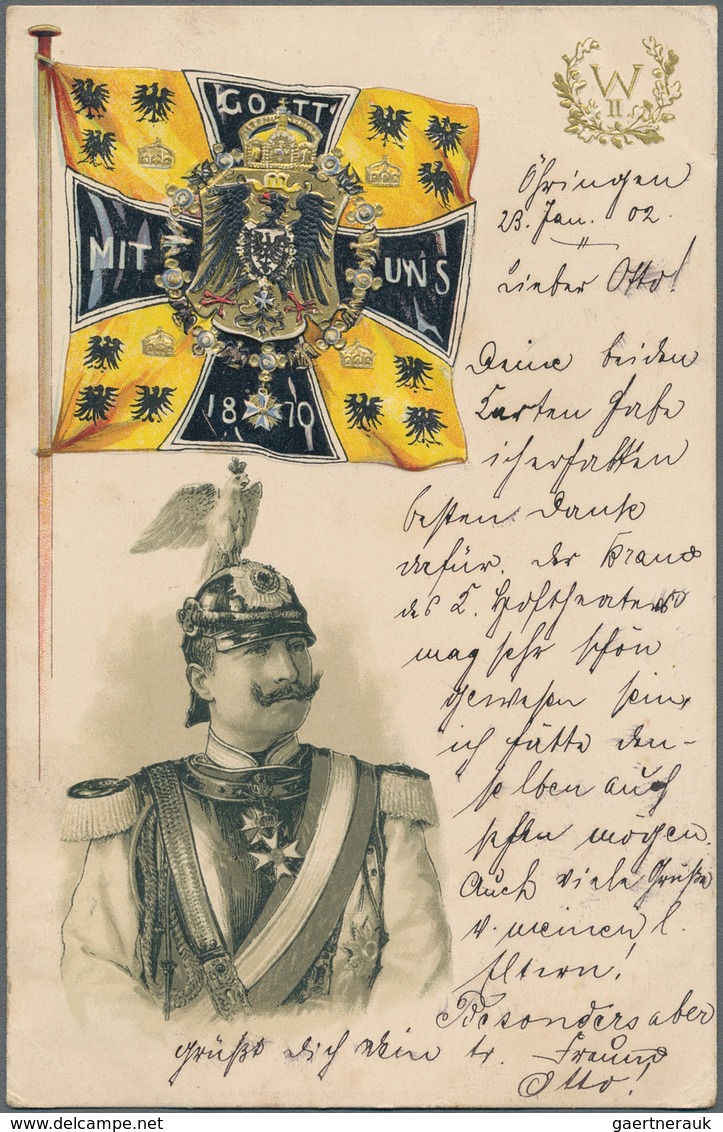 GOTT
MIT UNS
18 70
W
II
Öhringen
23. Jan. 02.
Lieber Otto!
Deine beiden
Karten habe
ich erhalten
besten Dank
dafür. der Brand
des K. Hoftheaters
mag sehr schön
gewesen sein,
ich hätte den-
selben auch
sehen mögen.
Auch viele Grüße
v. meinen l.
Eltern!
Besonders aber
grüßt dich Dein tr. Freund
Otto!
gaertnerauk